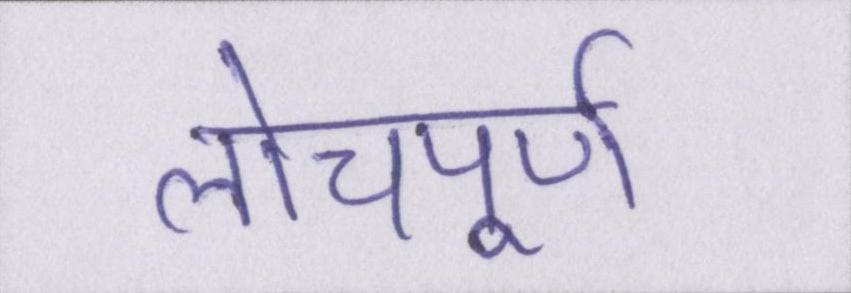 लोचपूर्ण